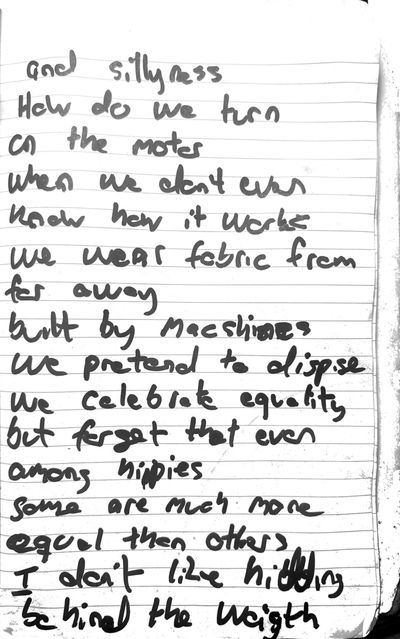 and sillyness
How do we turn
on the motor
when we don't even
know how it works
we wear fabric from
far away
built by macshines
we pretend to dispise
we celebrate equality
but forget that even
among hippies
some are much more
equal then others
I don't like hidding
behind the weigth